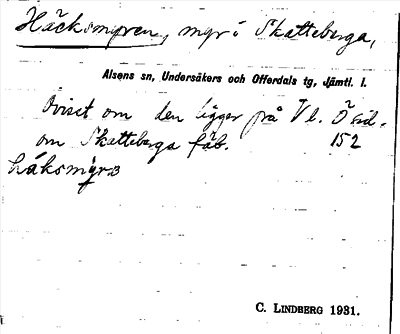 Häcksmyren, myr i Skatteberga,
Alsens sn, Undersåkers och Offerdals tg, Jämtl. l.
Ovisst om den ligger på V l. Ö sid.
om Skatteberga fäb. 152
C. LINDBERG 1931.